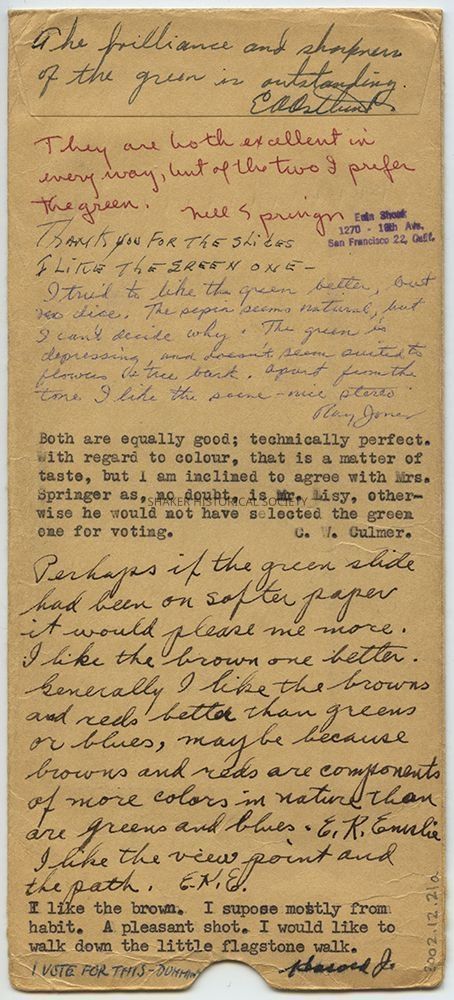 The brilliance and sharpness
of the green is outstanding.
They are both excellent in
every way, but of the two I prefer
the green. Nell Springer
Emin Shouk
1270 - 18th Ave.
San Francisco 22, Calif.
THANK YOU FOR THE SLIDES
I LIKE THE GREEN ONE -
I tried to like the green better, but
no dice. The sepia seems natural, but
I can't decide why. The green is
depressing, and doesn't seem suited to
flowers or tree bark. Apart from the
tone I like the scene - nice stereo
Ray Jones
Both are equally good; technically perfect.
With regard to colour, that is a matter of
taste, but I am inclined to agree with Mrs.
Springer as, no doubt, is Mr. Lisy, other-
SHAKER HISTORICAL SOCIETY
wise he would not have selected the green
one for voting. C. W. Culmer.
Perhaps if the green slide
had been on softer paper
it would please me more.
I like the brown one better.
Generally I like the browns
and reds better than greens
or blues, maybe because
browns and reds are components
of more colors in nature than
are greens and blues. E.R. Emslie
I like the view point and
the path. E.R.E.
I like the brown. I supose mostly from
habit. A pleasant shot. I would like to
walk down the little flagstone walk.
I VOTE FOR THIS - Harold J.
2002.12.21a